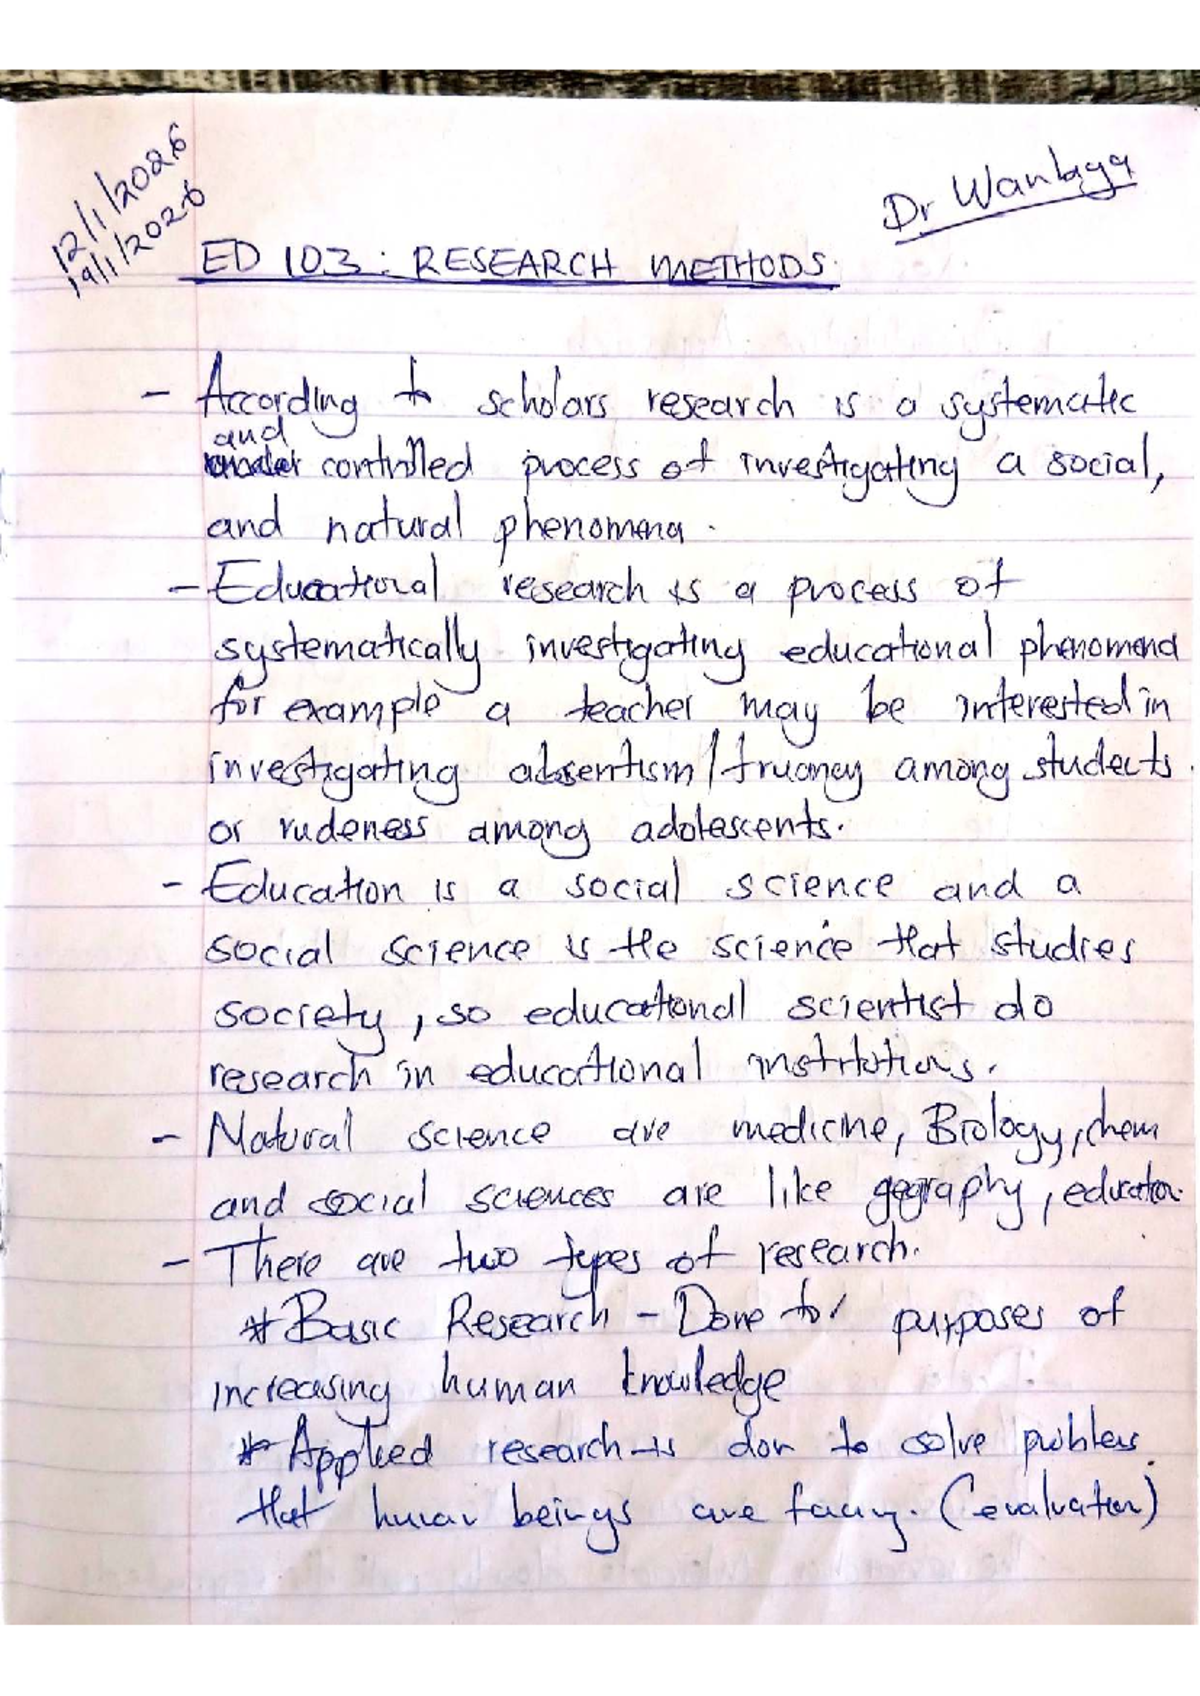 12/1/2026
19/1/2026
Dr Wanbaga
ED 103: RESEARCH METHODS.
- According to scholars research is a systematic
and
controlled process of investigating a social,
and natural phenomena.
- Educational research is a process of
systematically investigating educational phenomena
for example a teacher may be interested in
investigating absentism/truancy among students.
or rudeness among adolescents.
- Education is a social science and a
social science is the science that studies
society, so educational scientist do
research in educational institutions.
- Natural science are medicine, Biology, chem
and social sciences are like gegraphy, education
- There are two types of research.
* Basic Research - Done for purposes of
increasing human knowledge
* Applied research is don to solve problems
that human beings are facing. (evaluation)